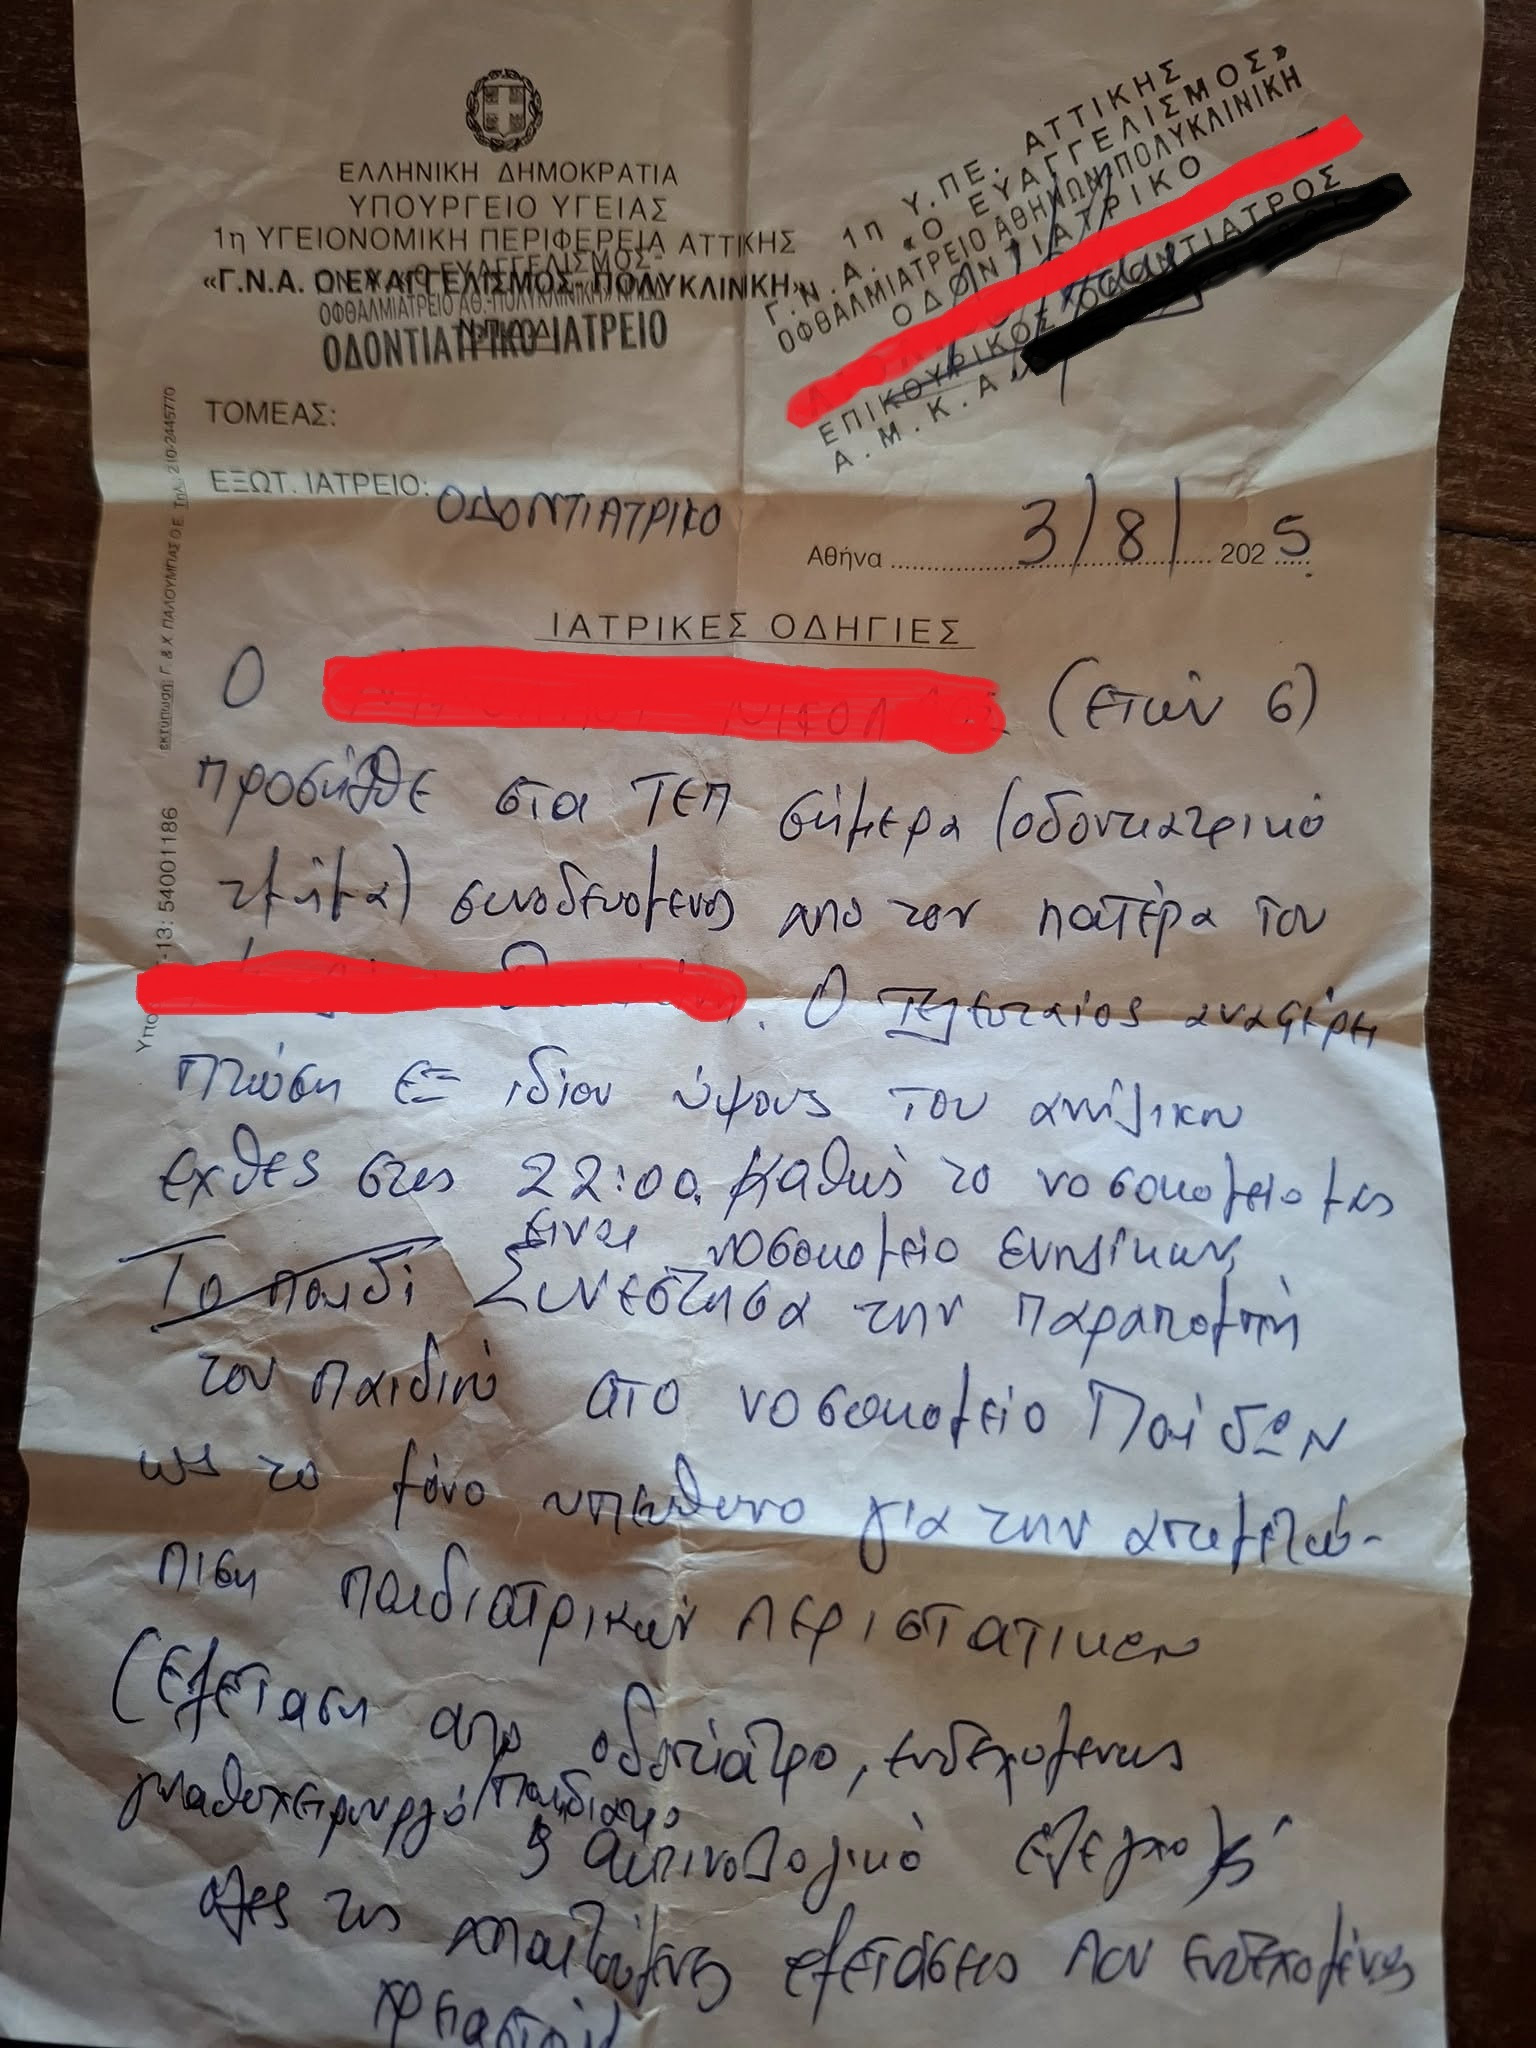 ΕΛΛΗΝΙΚΗ ΔΗΜΟΚΡΑΤΙΑ
ΥΠΟΥΡΓΕΙΟ ΥΓΕΙΑΣ
1η ΥΓΕΙΟΝΟΜΙΚΗ ΠΕΡΙΦΕΡΕΙΑ ΑΤΤΙΚΗΣ
«Γ.Ν.Α. Ο ΕΥΑΓΓΕΛΙΣΜΟΣ- ΠΟΛΥΚΛΙΝΙΚΗ»
ΟΦΘΑΛΜΙΑΤΡΕΙΟ ΑΘ.-ΠΟΛΥΚΛΙΝΙΚΗ» ΝΠΔΔ
Ν.Π.Δ.Δ.
ΟΔΟΝΤΙΑΤΡΙΚΟ ΙΑΤΡΕΙΟ
1η Υ.ΠΕ. ΑΤΤΙΚΗΣ
Γ.Ν.Α. «Ο ΕΥΑΓΓΕΛΙΣΜΟΣ»
ΟΦΘΑΛΜΙΑΤΡΕΙΟ ΑΘΗΝΩΝ ΠΟΛΥΚΛΙΝΙΚΗ
ΟΔΟΝΤΙΑΤΡΙΚΟ
ΕΠΙΚΟΥΡΙΚΟΣ ΟΔΟΝΤΙΑΤΡΟΣ
Α.Μ.Κ.Α.
ΤΟΜΕΑΣ:
ΕΞΩΤ. ΙΑΤΡΕΙΟ: ΟΔΟΝΤΙΑΤΡΙΚΟ
Αθήνα 3/8/ 2025
ΙΑΤΡΙΚΕΣ ΟΔΗΓΙΕΣ
Ο (ετών 6)
προσήλθε στα ΤΕΠ σήμερα (οδοντιατρικό
τμήμα) συνοδευόμενος από τον πατέρα του
. Ο τελευταίος αναφέρει
πτώση εξ ιδίου ύψους του ανήλικου
εχθές στις 22:00. Καθώς το νοσοκομείο μας
είναι νοσοκομείο ενηλίκων,
Το παιδί Συνέστησα την παραπομπή
του παιδιού στο νοσοκομείο Παίδων
ως το μόνο υπεύθυνο για την αντιμετώ-
πιση παιδιατρικών περιστατικών
(Εξέταση από οδοντίατρο, ενδεχομένως
γναθοχειρουργό/παιδίατρο
& ακτινολογικό έλεγχο) &
όλες τις απαιτούμενες εξετάσεις που ενδεχομένως
χρειαστούν
εκτύπωση: Γ. & Χ. ΠΑΛΟΥΜΠΑΣ Ο.Ε. Τηλ.: 210-2445770
13: 54001186